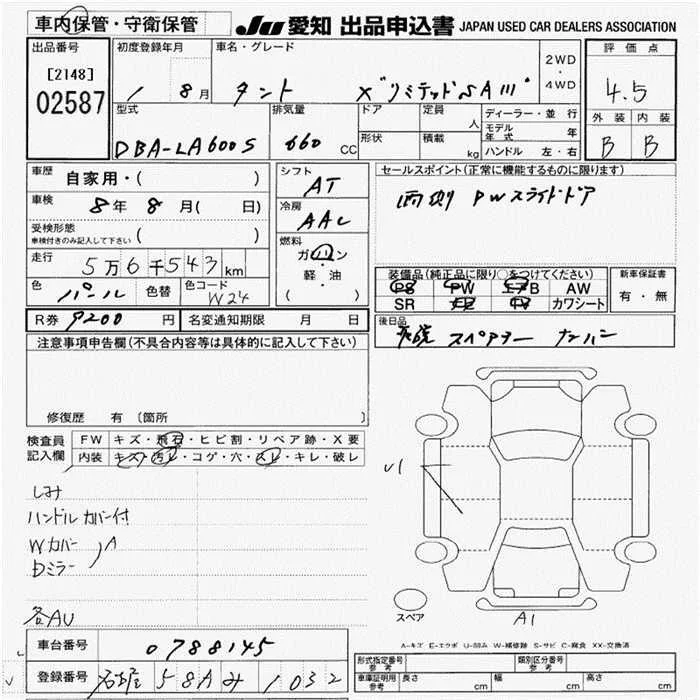 車内保管・守衛保管
JU 愛知 出品申込書 JAPAN USED CAR DEALERS ASSOCIATION
出品番号
[2148]
02587
初度登録年月
1 8月
車名・グレード
タント X"リミテッドSAⅢ"
2WD
・
4WD
評価点
4.5
外装 内装
B B
型式
DBA-LA600S
排気量
660 CC
ドア
形状
定員 人
積載 kg
ディーラー・並行
モデル年式 年
ハンドル 左・右
車歴 自家用・( )
車検 8年 8月( 日)
受検形態
車検付きのみ記入して下さい ( )
走行 5万6千543km
色 パール 色替 色コード W24
シフト
AT
冷房
AAC
燃料
ガソリン
・
軽・油
( )
セールスポイント(正常に機能するものに限ります)
両側 PWスライドドア
装備品(純正品に限り○をつけてください)
PS PW エアB AW
SR ナビ TV カワシート
新車保証書
有・無
R券 9200 円 名変通知期限 月 日
後日品
スペアキー ナンバー
注意事項申告欄(不具合内容等は具体的に記入して下さい)
修復歴 有 〔箇所
検査員
記入欄
FW キズ・飛石・ヒビ割・リペア跡・X要
内装 キズ・汚レ・コゲ・穴・スレ・キレ・破レ
しみ
ハンドルカバー付
Wカバー
Dミラー )A
各AU
U1
スペア
A1
A-キズ E-エクボ U-凹み W-補修跡 S-サビ C-腐食 XX-交換済
車台番号 0788145
登録番号 名古屋 58A み 1032
形式指定番号
参考
類別区分番号
参考
車庫証明用
参考
長さ cm 幅 cm 高さ cm